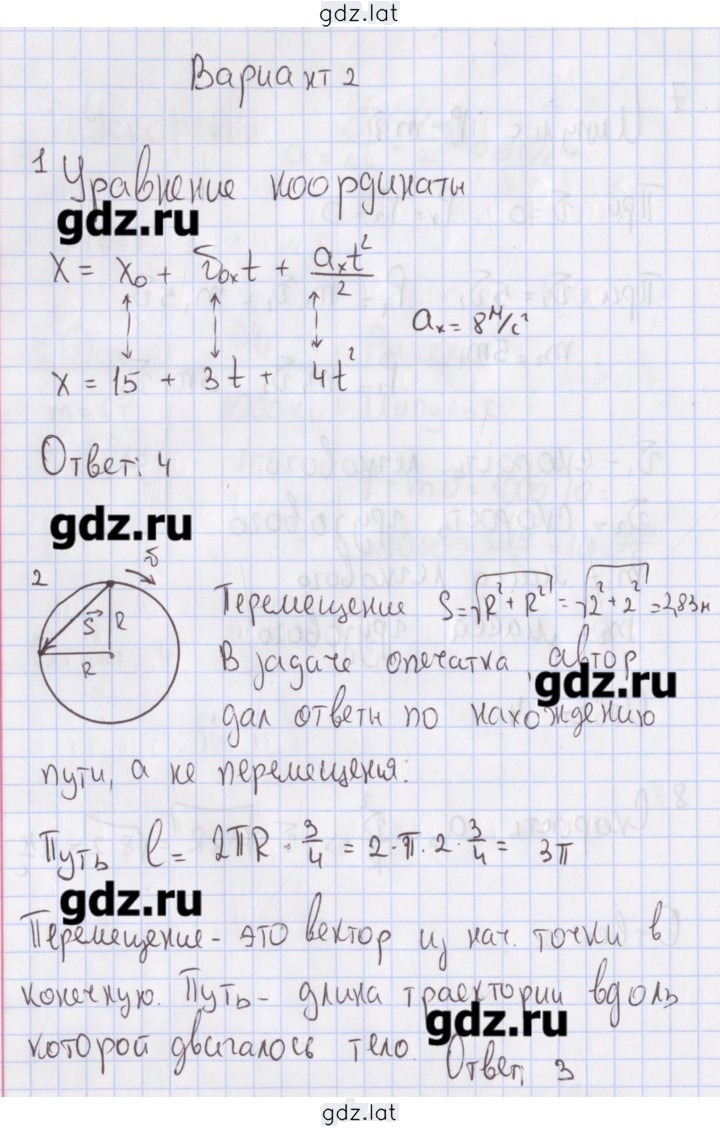 gdz.lat
Вариант 2
1 Уравнение координаты
gdz.ru
x = x₀ + υ₀ₓt + aₓt²/2
aₓ = 8 м/с²
x = 15 + 3t + 4t²
Ответ: 4
gdz.ru
2 υ
S R
R
Перемещение S = √R² + R² = √2² + 2² = 2,83 м
В задаче опечатка, автор
gdz.ru
дал ответы по нахождению
пути, а не перемещения.
Путь l = 2πR · 3/4 = 2·π·2·3/4 = 3π
gdz.ru
Перемещение - это вектор из нач. точки в
конечную. Путь - длина траектории вдоль
gdz.ru
которой двигалось тело. Ответ: 3
gdz.lat